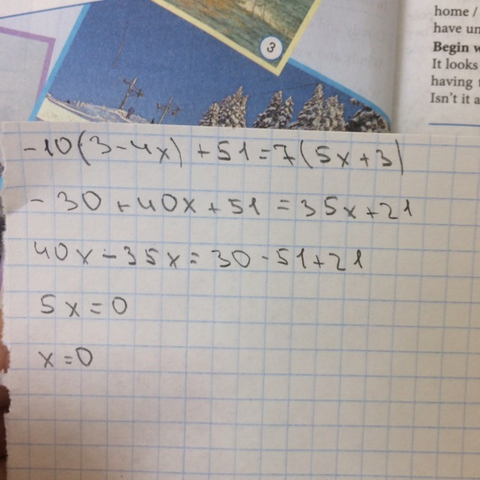 3
home /
have un
Begin w
It looks
having t
Isn't it a
-10(3-4x)+51=7(5x+3)
-30+40x+51=35x+21
40x-35x=30-51+21
5x=0
x=0